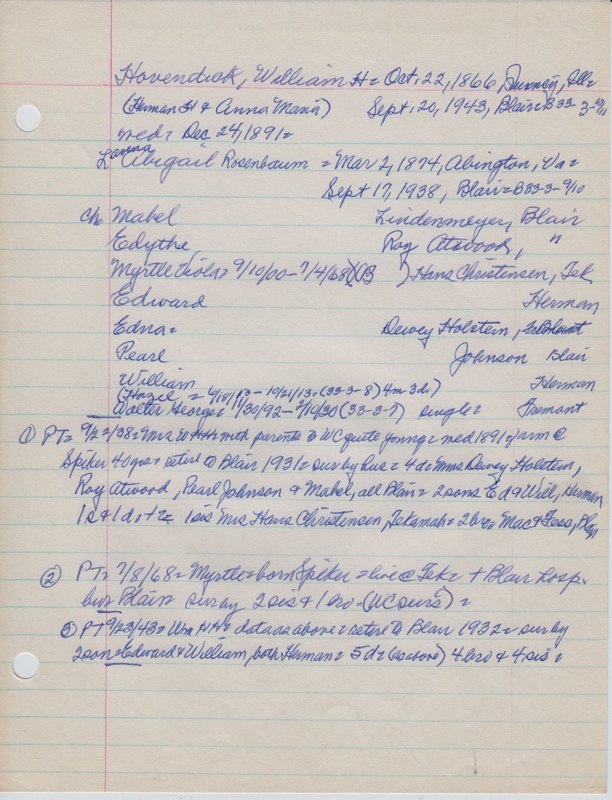 Hovendick, William H= Oct. 22, 1866, Quincy, Ill=
(Herman H & Anna Maria) Sept. 20, 1943, Blair= B 33-3-9/11
med= Dec 24, 1891=
Lavina Abigail Rosenbaum = Mar 2, 1874, Abington, Va=
Sept 17, 1938, Blair= B 33-3-9/10
ch Mabel Lindenmeyer, Blair
Edythe, Roy Atwood, "
Myrtle Viola= 9/10/00-7/4/68 (B ) Hans Christensen, Tek
Edward Herman
Edna= Dewey Holstein, Blair
Pearl Johnson Blair
William Herman
(Hazel = 6/18/13-10/21/13= (33-3-8) 4m 3d=)
Walter George= 11/30/92-2/10/30 (33-3-7) single= Fremont
① PT= 9/22/38= Mrs W HH= with parents to WC quite young= med 1891= farm @
Spiker 40 yrs= retire to Blair 1931= sur by hus= 4 d= Mmes Dewey Holstein,
Roy Atwood, Pearl Johnson & Mabel, all Blair= 2 sons Ed & Will, Herman
1 sis Mrs Hans Christensen, Tekamah= 2 bro= Mac & Tess, Blair
② PT= 7/8/68= Myrtle= born Spiker= live @ Tek= + Blair hosp.
bur Blair= sur by 2 sis & 1 bro. (WC ours) =
③ PT 9/23/43= Wm HH= data as above= retire to Blair 1932= sur by
2 son= Edward & William, both Herman= 5 d= (as above) 4 bro & 4 sis=